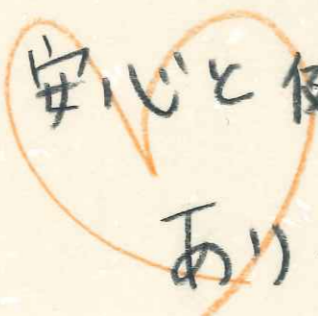 安心と
あり